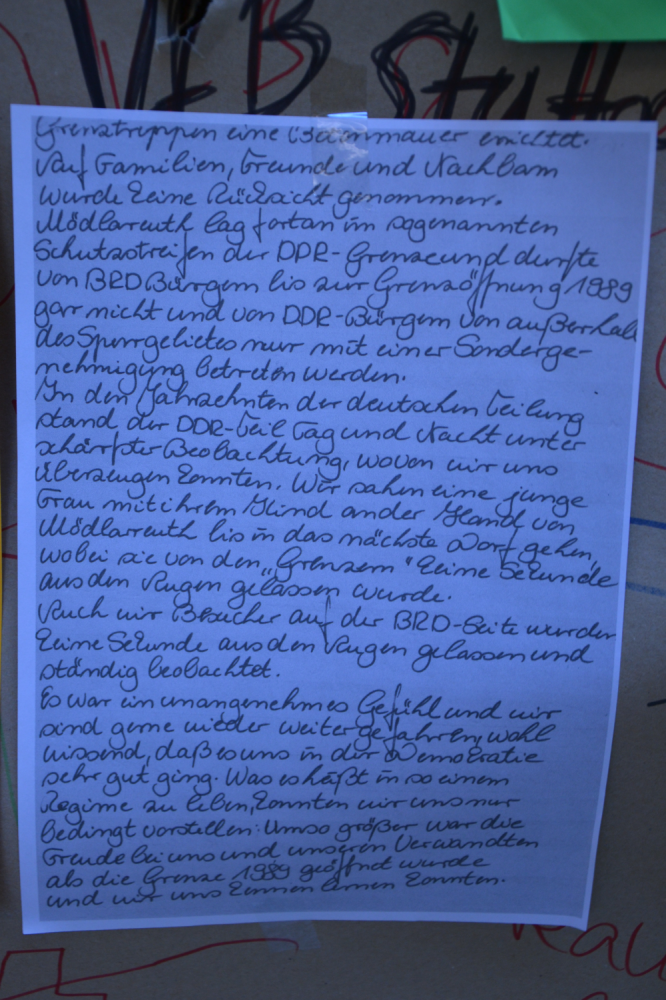 VEB
Grenztruppen eine Betonmauer errichtet.
Auf Familien, Freunde und Nachbarn
wurde keine Rücksicht genommen.
Mödlareuth lag fortan im sogenannten
Schutzstreifen der DDR-Grenze und durfte
von BRD Bürgern bis zur Grenzöffnung 1989
gar nicht und von DDR-Bürgern von außerhalb
des Sperrgebietes nur mit einer Sonderge-
nehmigung betreten werden.
In den Jahrzehnten der deutschen Teilung
stand der DDR-Teil Tag und Nacht unter
schärfster Beobachtung, wovon wir uns
überzeugen konnten. Wir sahen eine junge
Frau mit ihrem Kind an der Hand von
Mödlareuth bis in das nächste Dorf gehen,
wobei sie von den „Grenzern" keine Sekunde
aus den Augen gelassen wurde.
Auch wir Besucher auf der BRD-Seite wurden
keine Sekunde aus den Augen gelassen und
ständig beobachtet.
Es war ein unangenehmes Gefühl und wir
sind gerne wieder weitergefahren, wohl
wissend, daß es uns in der Demokratie
sehr gut ging. Was es heißt in so einem
Regime zu leben, konnten wir uns nur
bedingt vorstellen. Umso größer war die
Freude bei uns und unseren Verwandten
als die Grenze 1989 geöffnet wurde
und wir uns kennen lernen konnten.